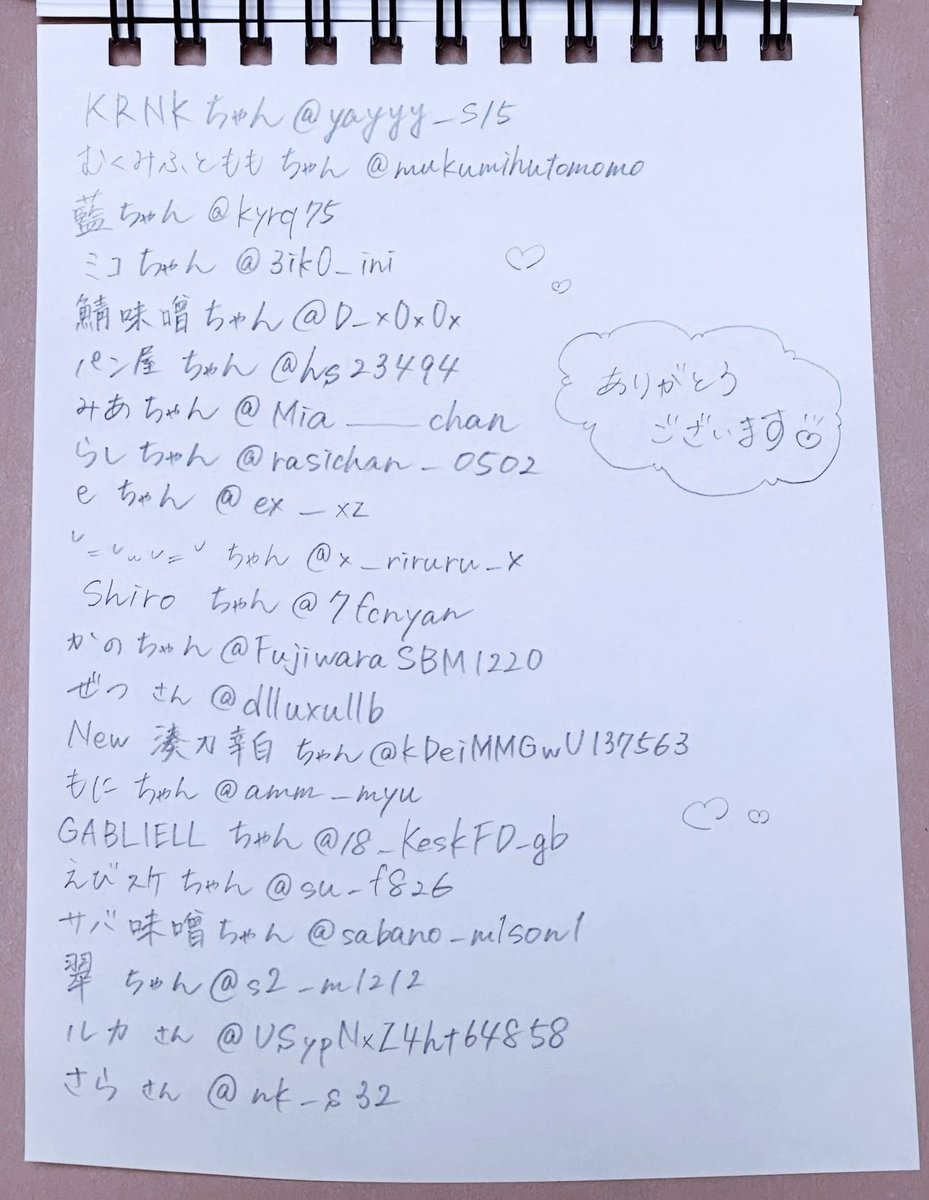 KRNKちゃん @yayyy_s15
むくみふとももちゃん @mukumihutomomo
藍ちゃん @kyrq75
ミコちゃん @3ik0_ini
鯖味噌ちゃん @D_x0x0x
パン屋ちゃん @hs23494
みあちゃん @Mia____chan
らしちゃん @rasichan_0502
eちゃん @ex__xz
ちゃん @x_riruru_x
Shiroちゃん @7fcnyan
かのちゃん @FujiwaraSBM1220
ぜつさん @dlluxullb
New 湊刀幸白ちゃん @kDeiMMGwU137563
もにちゃん @amm_myu
GABLIELLちゃん @18_KeskFD_gb
えびスケちゃん @su_f826
サバ味噌ちゃん @sabano_m1son1
翠ちゃん @s2_m1212
ルカさん @USypNxZ4ht64858
さらさん @nk_s32
ありがとう
ございます